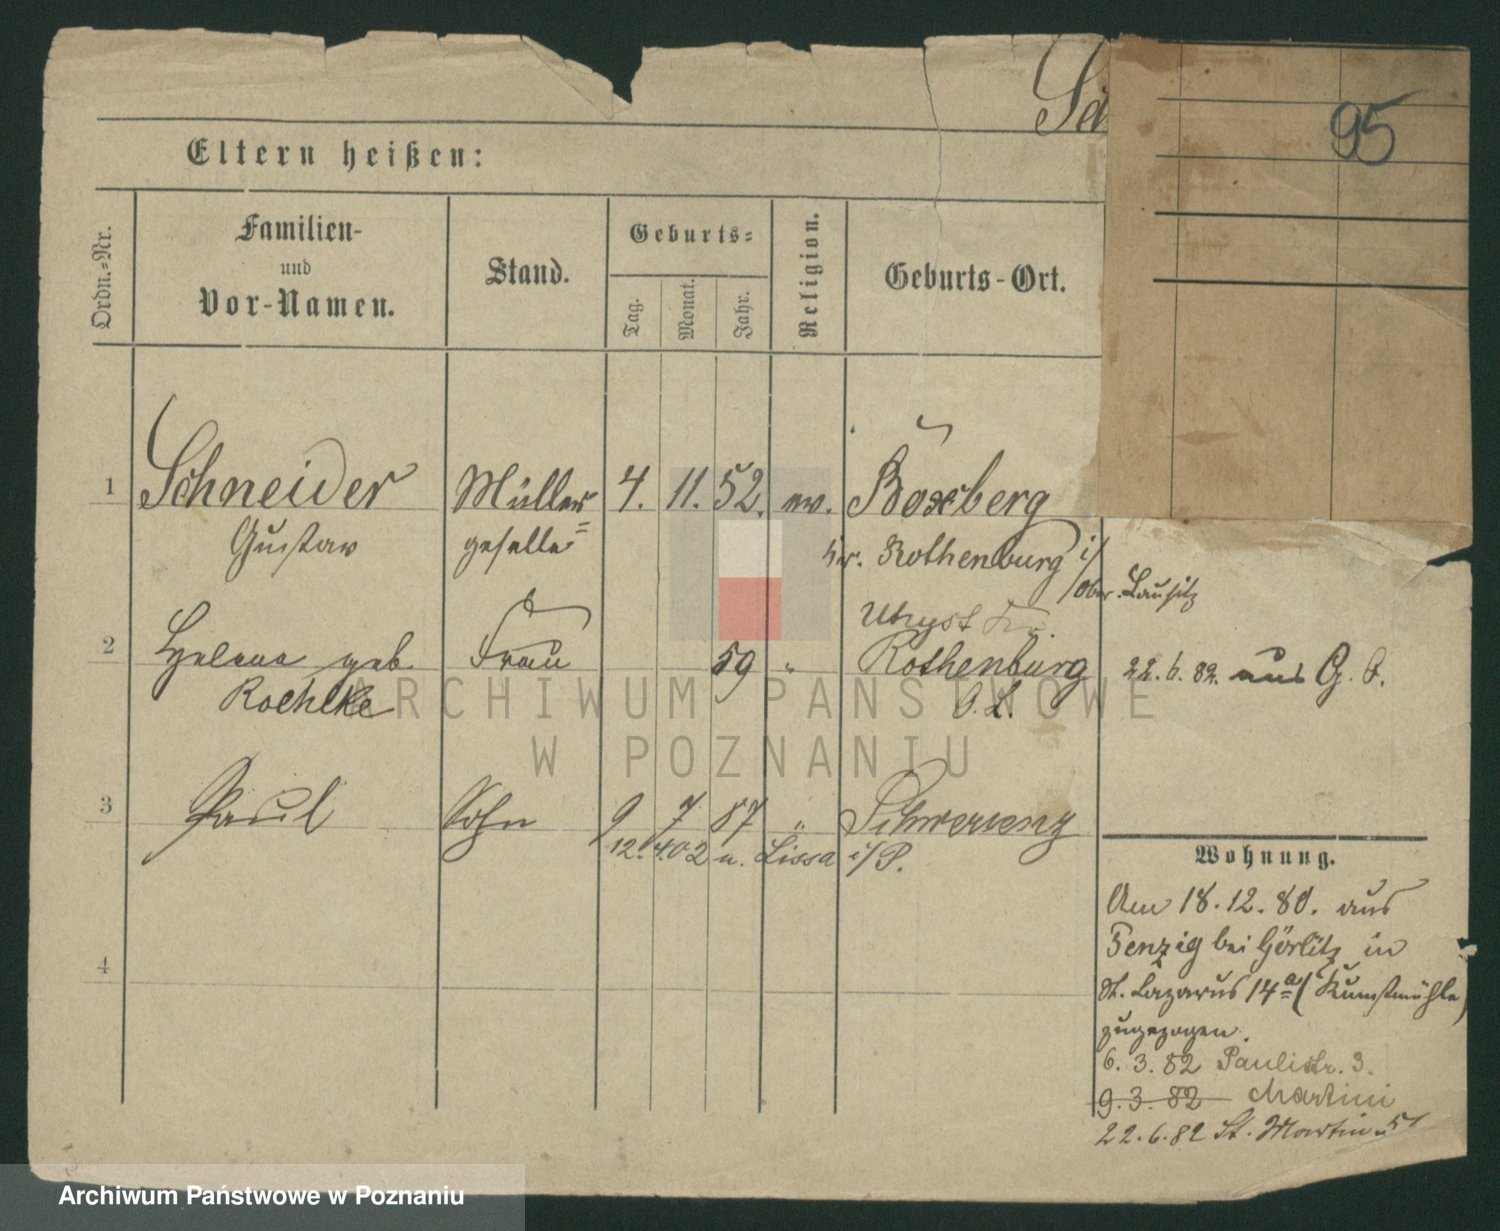 95
Eltern heißen:
Ordn.-Nr.
Familien-
und
Vor-Namen.
Stand.
Geburts-
Tag.
Monat.
Jahr.
Religion.
Geburts-Ort.
1 Schneider Müller= 4. 11. 52. ev. Boxberg
Gustav geselle Kr. Rothenburg i/
Ober-Lausitz
Uhyst Kr.
2 Helene geb Frau 59 " Rothenburg 22.6.82. aus G. J.
Roehlke O. L.
3 Paul Sohn 9 7 87 " Schwersenz
12. 4.02 n. Lissa i/P.
4
Wohnung.
Am 18.12.80. aus
Penzig bei Görlitz in
St. Lazarus 14a (Kunstmühle)
zugezogen.
6.3.82 Paulistr. 3.
9.3.82 Martini
22.6.82 St. Martin 51
ARCHIWUM PAŃSTWOWE
W POZNANIU
Archiwum Państwowe w Poznaniu